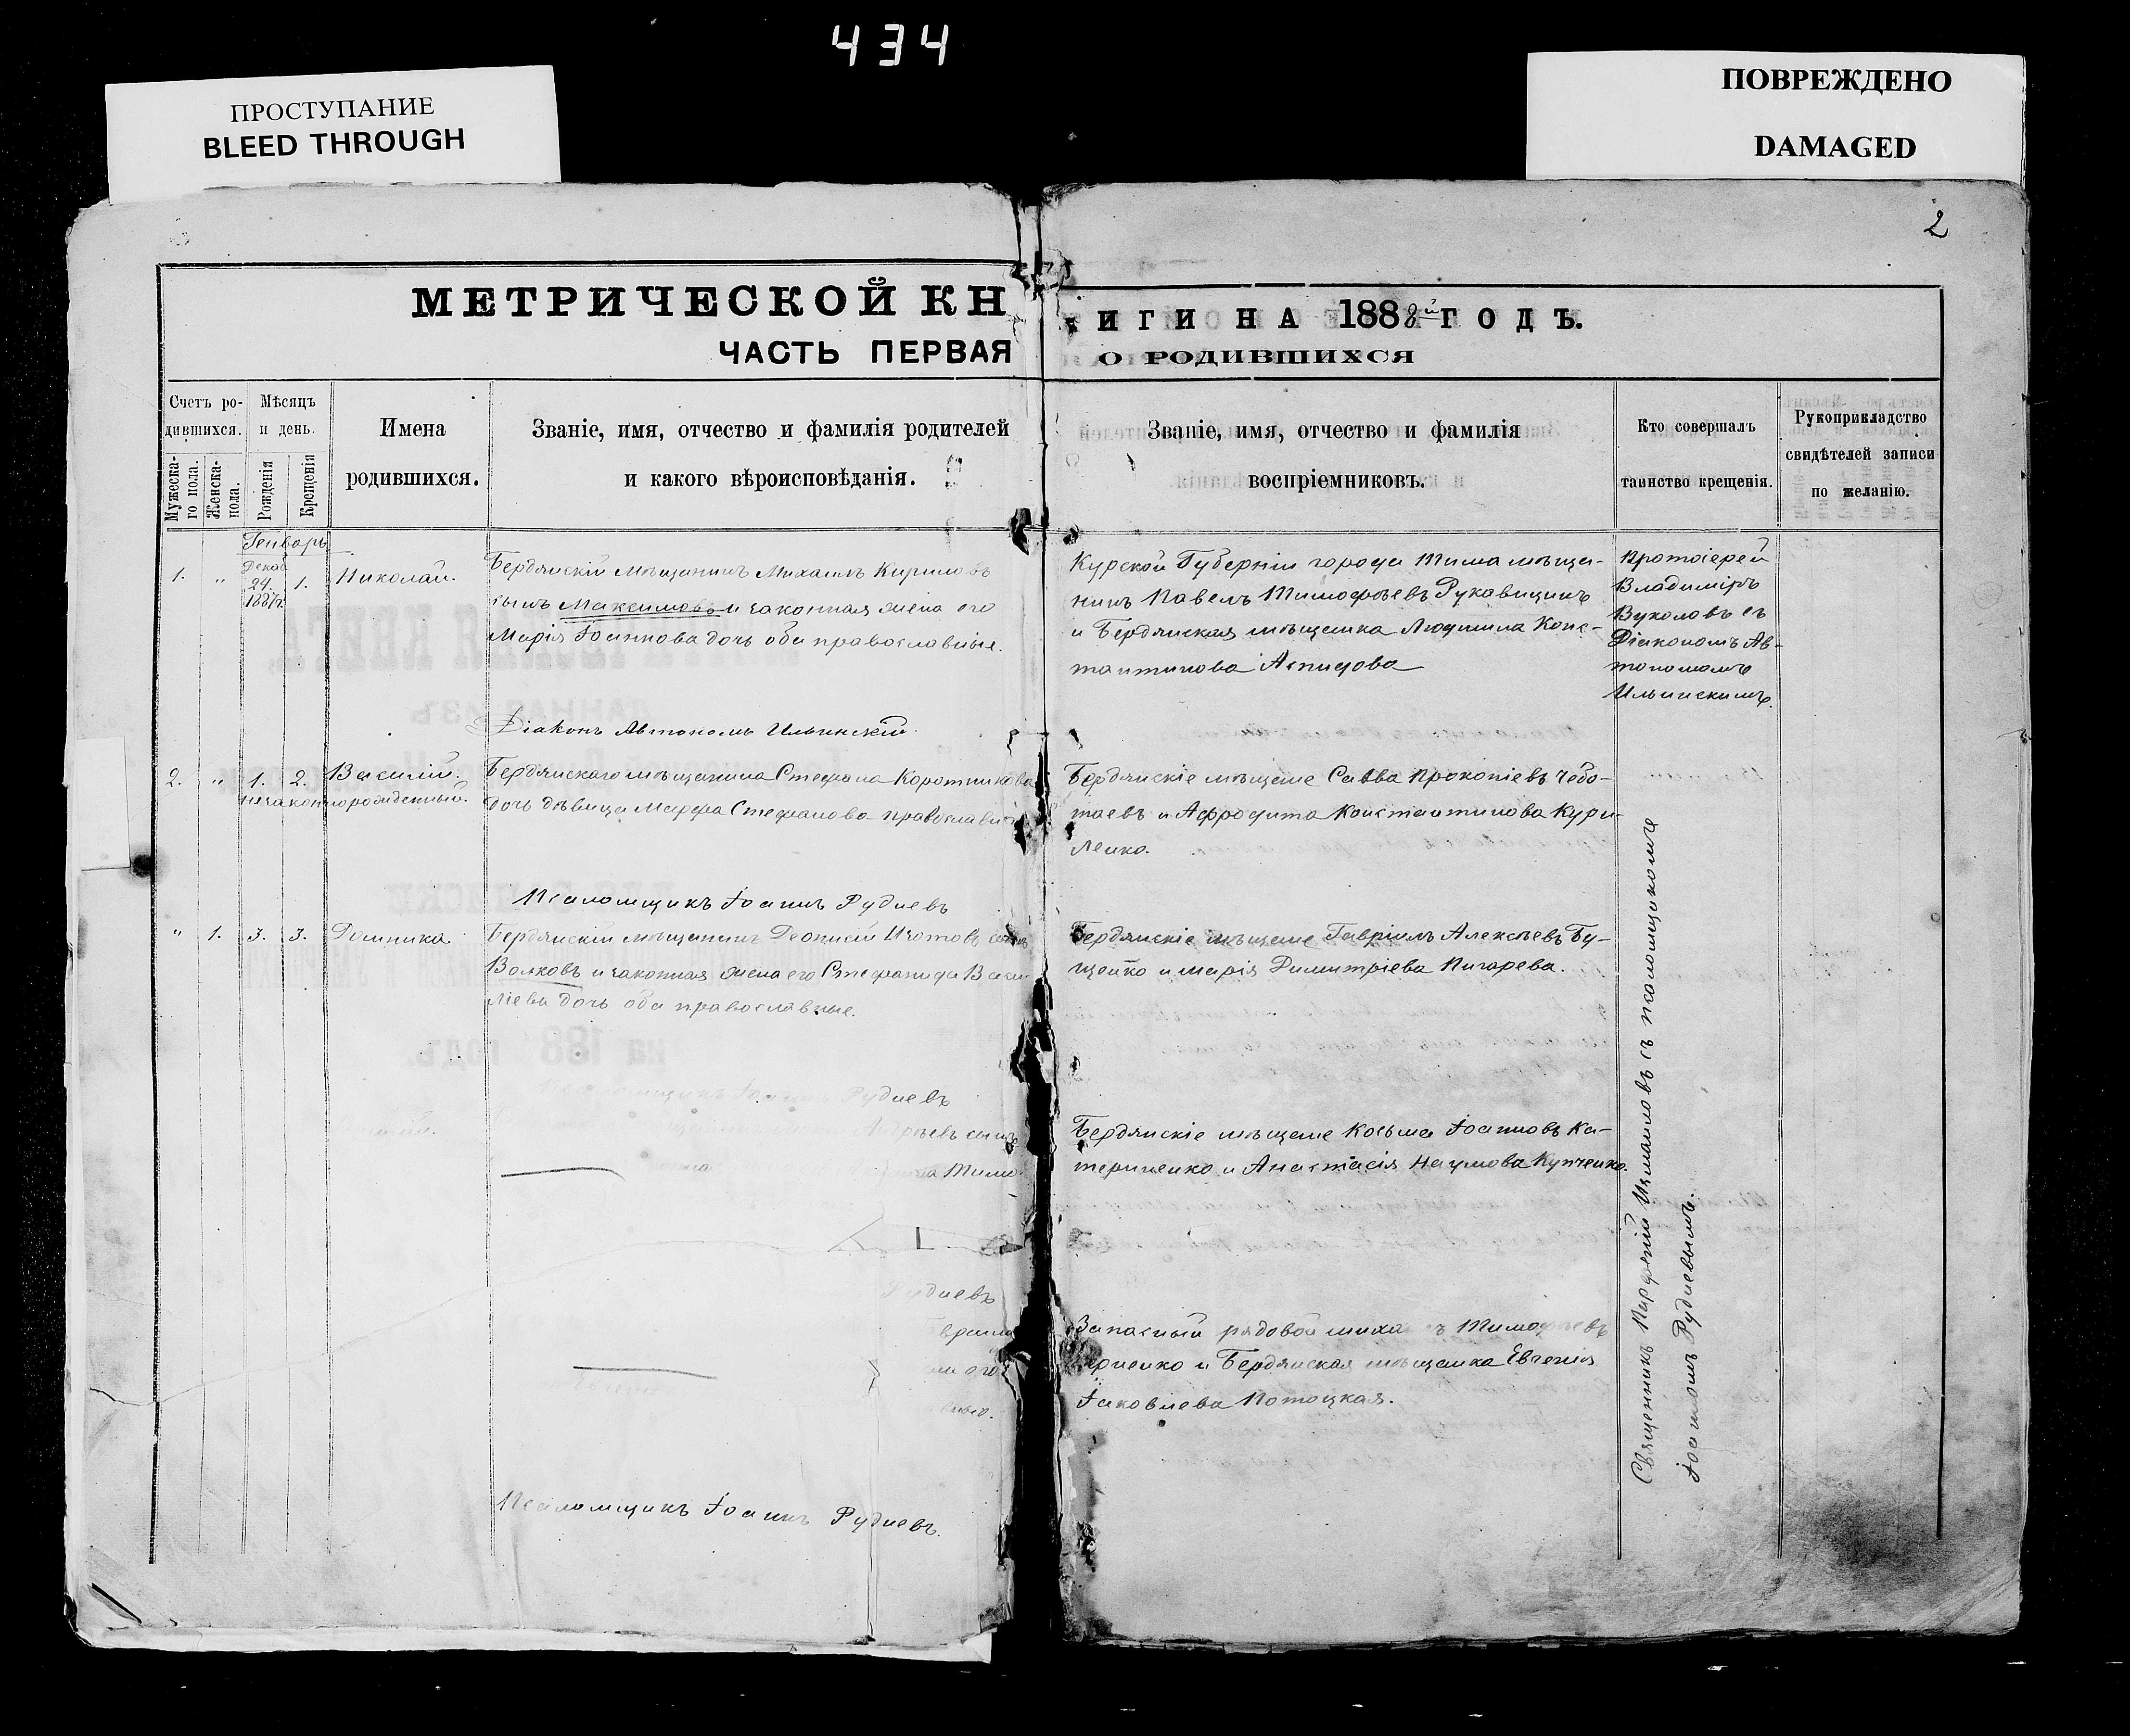 434
ПРОСТУПАНИЕ
BLEED THROUGH
ПОВРЕЖДЕНО
DAMAGED
2
МЕТРИЧЕСКОЙ КН
ИГИ НА 1888й ГОДЪ.
ЧАСТЬ ПЕРВАЯ
О РОДИВШИХСЯ
Счетъ ро-
дившихся.
Мужеска-
го пола.
Женска-
пола.
Мѣсяцъ
и день.
Рожденія
Крещенія
Имена
родившихся.
Званіе, имя, отчество и фамилія родителей
и какого вѣроисповѣданія.
Званіе, имя, отчество и фамилія
воспріемниковъ.
Кто совершалъ
таинство крещенія.
Рукоприкладство
свидѣтелей записи
по желанію.
Генварь
1. " Декаб 24. 1887г. 1. Николай.
Бердянскій мѣщанинъ Михаилъ Кириловъ
сынъ Максимовъ и законная жена его
Марія Іоаннова дочь оба православные.
Діаконъ Автономъ Ильинскій.
Курской Губерніи города Тима мѣща-
нинъ Павелъ Тимофѣевъ Рукавицинъ
и Бердянская мѣщанка Людмила Конс-
тантинова Аспидова
Протоіерей
Владиміръ
Вуколовъ съ
Діакономъ Ав-
тономомъ
Ильинскимъ.
2. " 1. 2. Василій.
незаконнорожденный.
Бердянскаго мѣщанина Стефана Коротникова
дочь дѣвица Марфа Стефанова православн
Псаломщикъ Іоаннъ Рудневъ
Бердянскіе мѣщане Савва Прокопіевъ Чебо-
таевъ и Афродита Константинова Кури-
ленко.
" 1. 3. 3. Домника
Бердянскій мѣщанинъ Леонтій Изотовъ сынъ
Волковъ и законная жена его Стефанида Васи
ліева дочь оба православные.
Псаломщикъ Іоаннъ Рудневъ
Бердянскіе мѣщане Гавріилъ Алексѣевъ Бу-
щенко и Марія Димитріева Пигарева.
сынъ
Тимо
Рудневъ
Бердянскіе мѣщане Косьма Іоанновъ Ка-
териненко и Анастасія Наумова Купченко.
его
Запасный рядовой Миха ъ Тимофѣевъ
и Бердянская мѣщанка Евгенія
Іаковлева Потоцкая.
Псаломщикъ Іоаннъ Рудневъ.
Священникъ Парфеній Измаиловъ съ псаломщикомъ
Іоанномъ Рудневымъ.